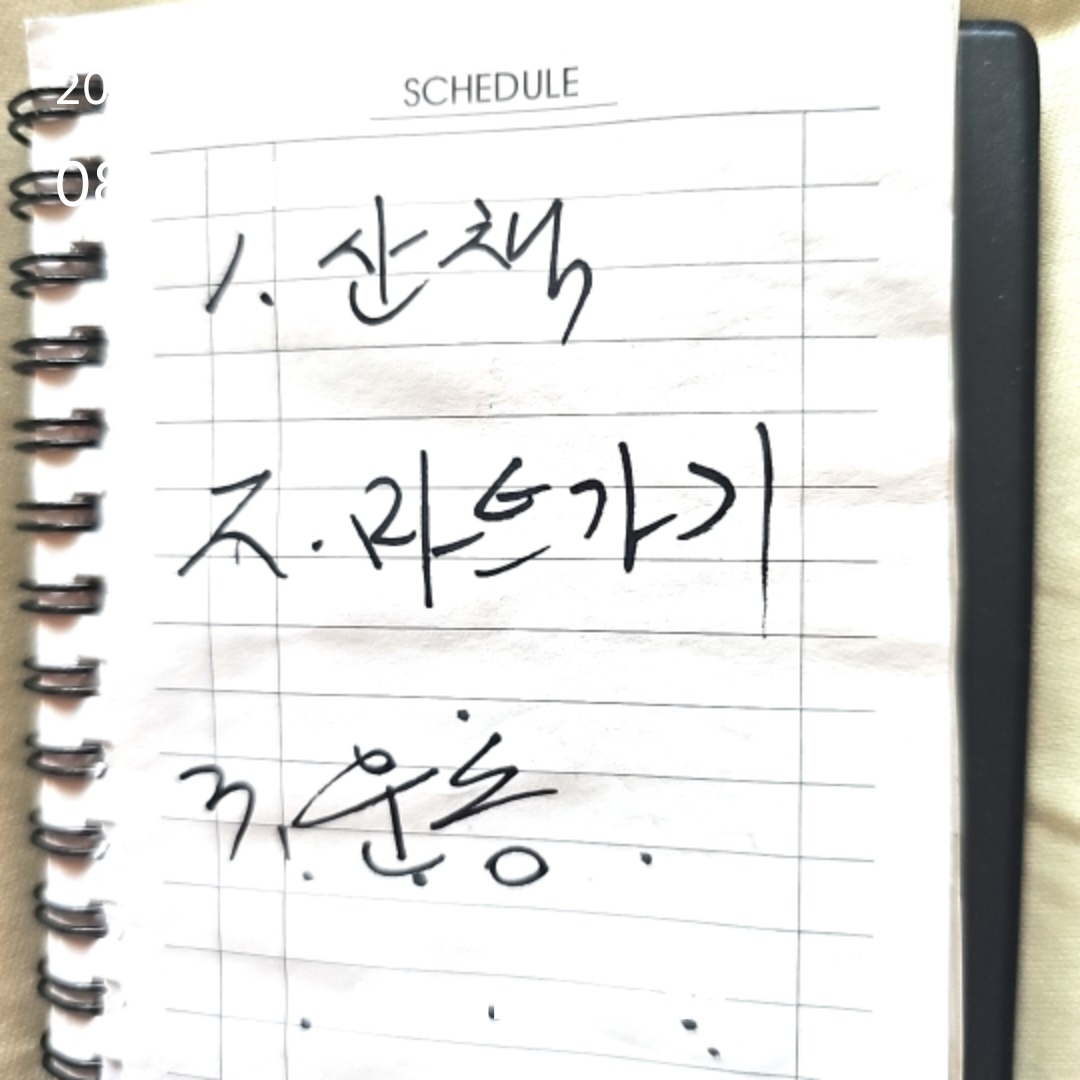 20
08
SCHEDULE
1. 산책
2. 마트가기
3. 운동